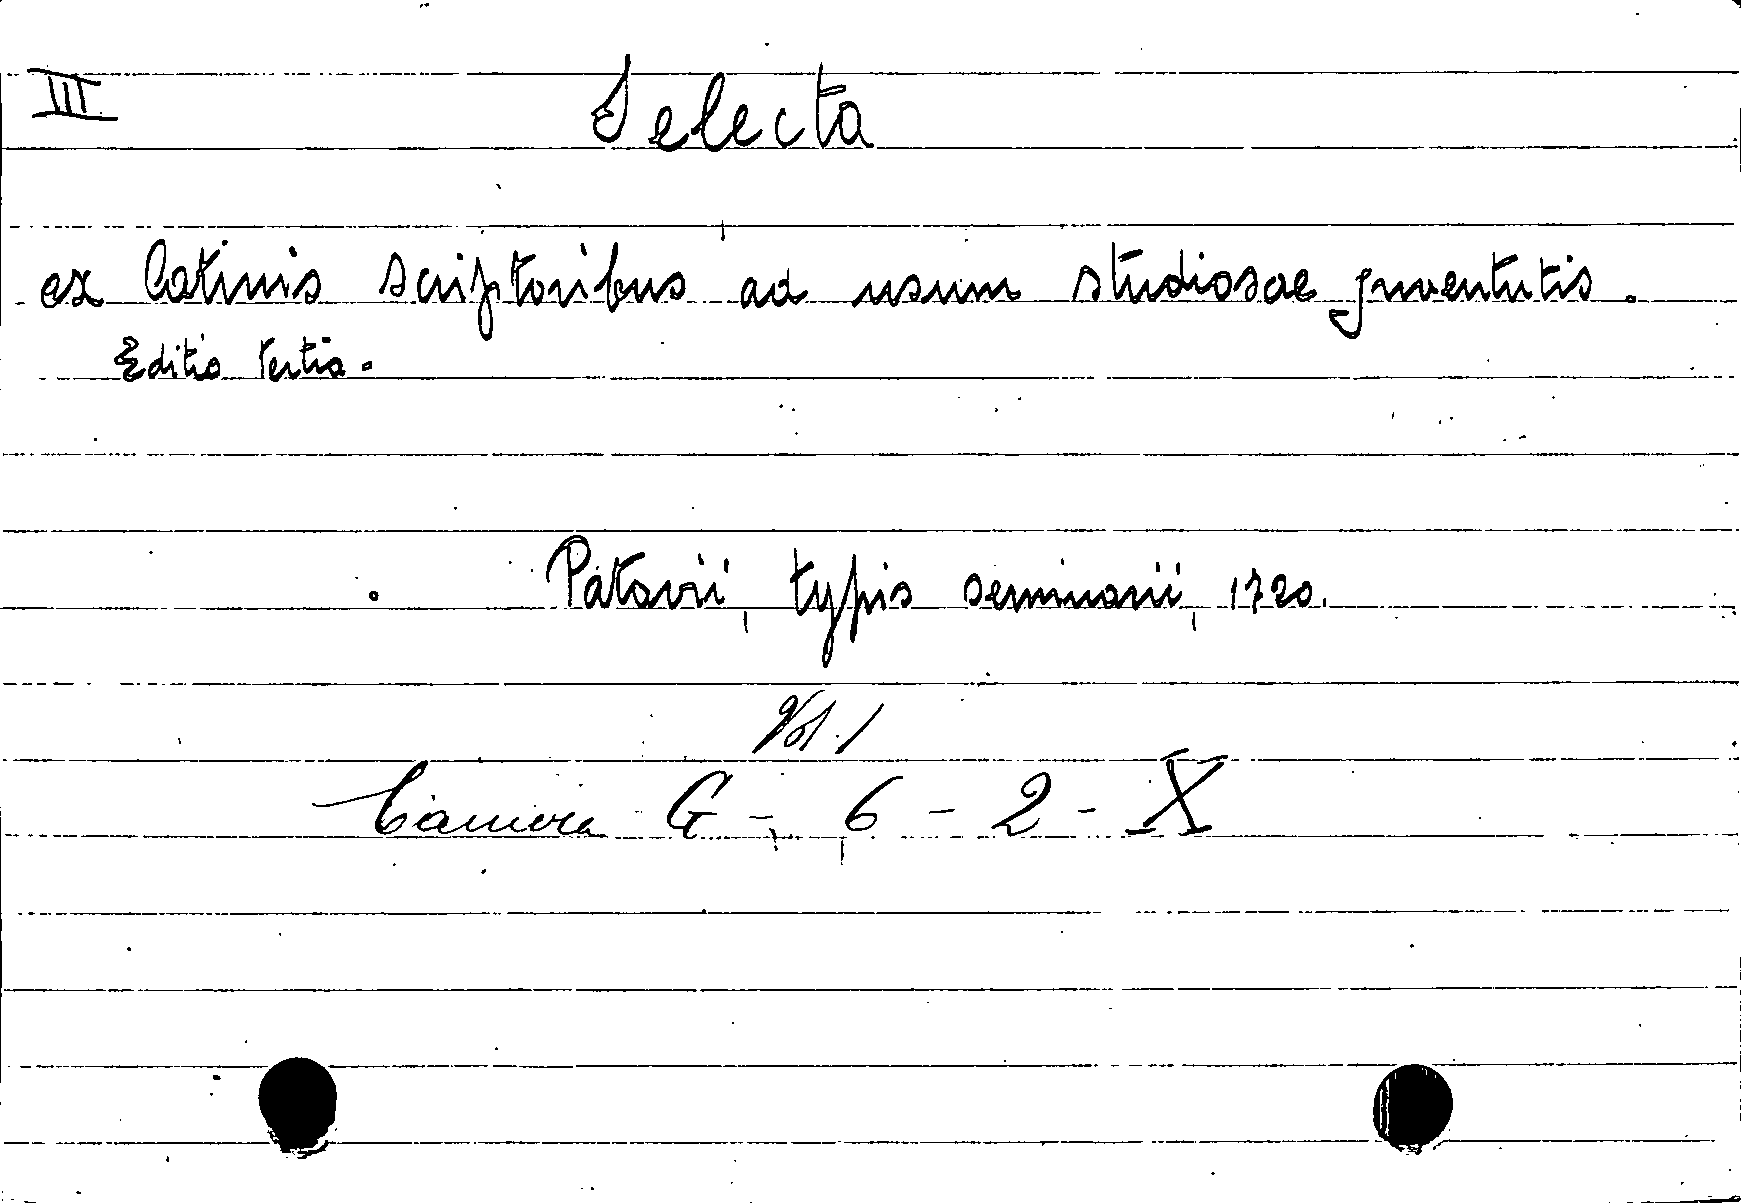 III
Selecta
ex latinis scriptoribus ad usum studiosae juventutis.
Editio tertia.
Patavii, typis seminarii, 1720.
Vol. 1
Camera G - 6 - 2 - X